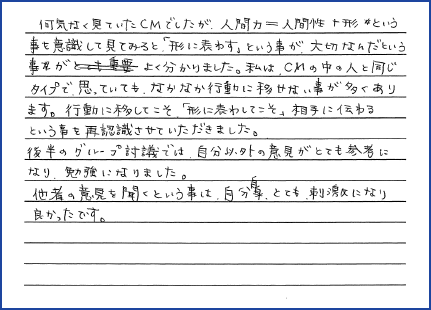 何気なく見ていたCMでしたが、人間力=人間性+形 という
事を意識して見てみると、「形に表わす」という事が、大切なんだという
事が よく分かりました。私は、CMの中の人と同じ
タイプで、思っていても、なかなか行動に移せない事が多くあり
ます。行動に移してこそ、「形に表わしてこそ」、相手に伝わる
という事を再認識させていただきました。
後半のグループ討議では、自分以外の意見がとても参考に
なり、勉強になりました。
他者の意見を聞くという事は、自分自身、とても、刺激になり
良かったです。